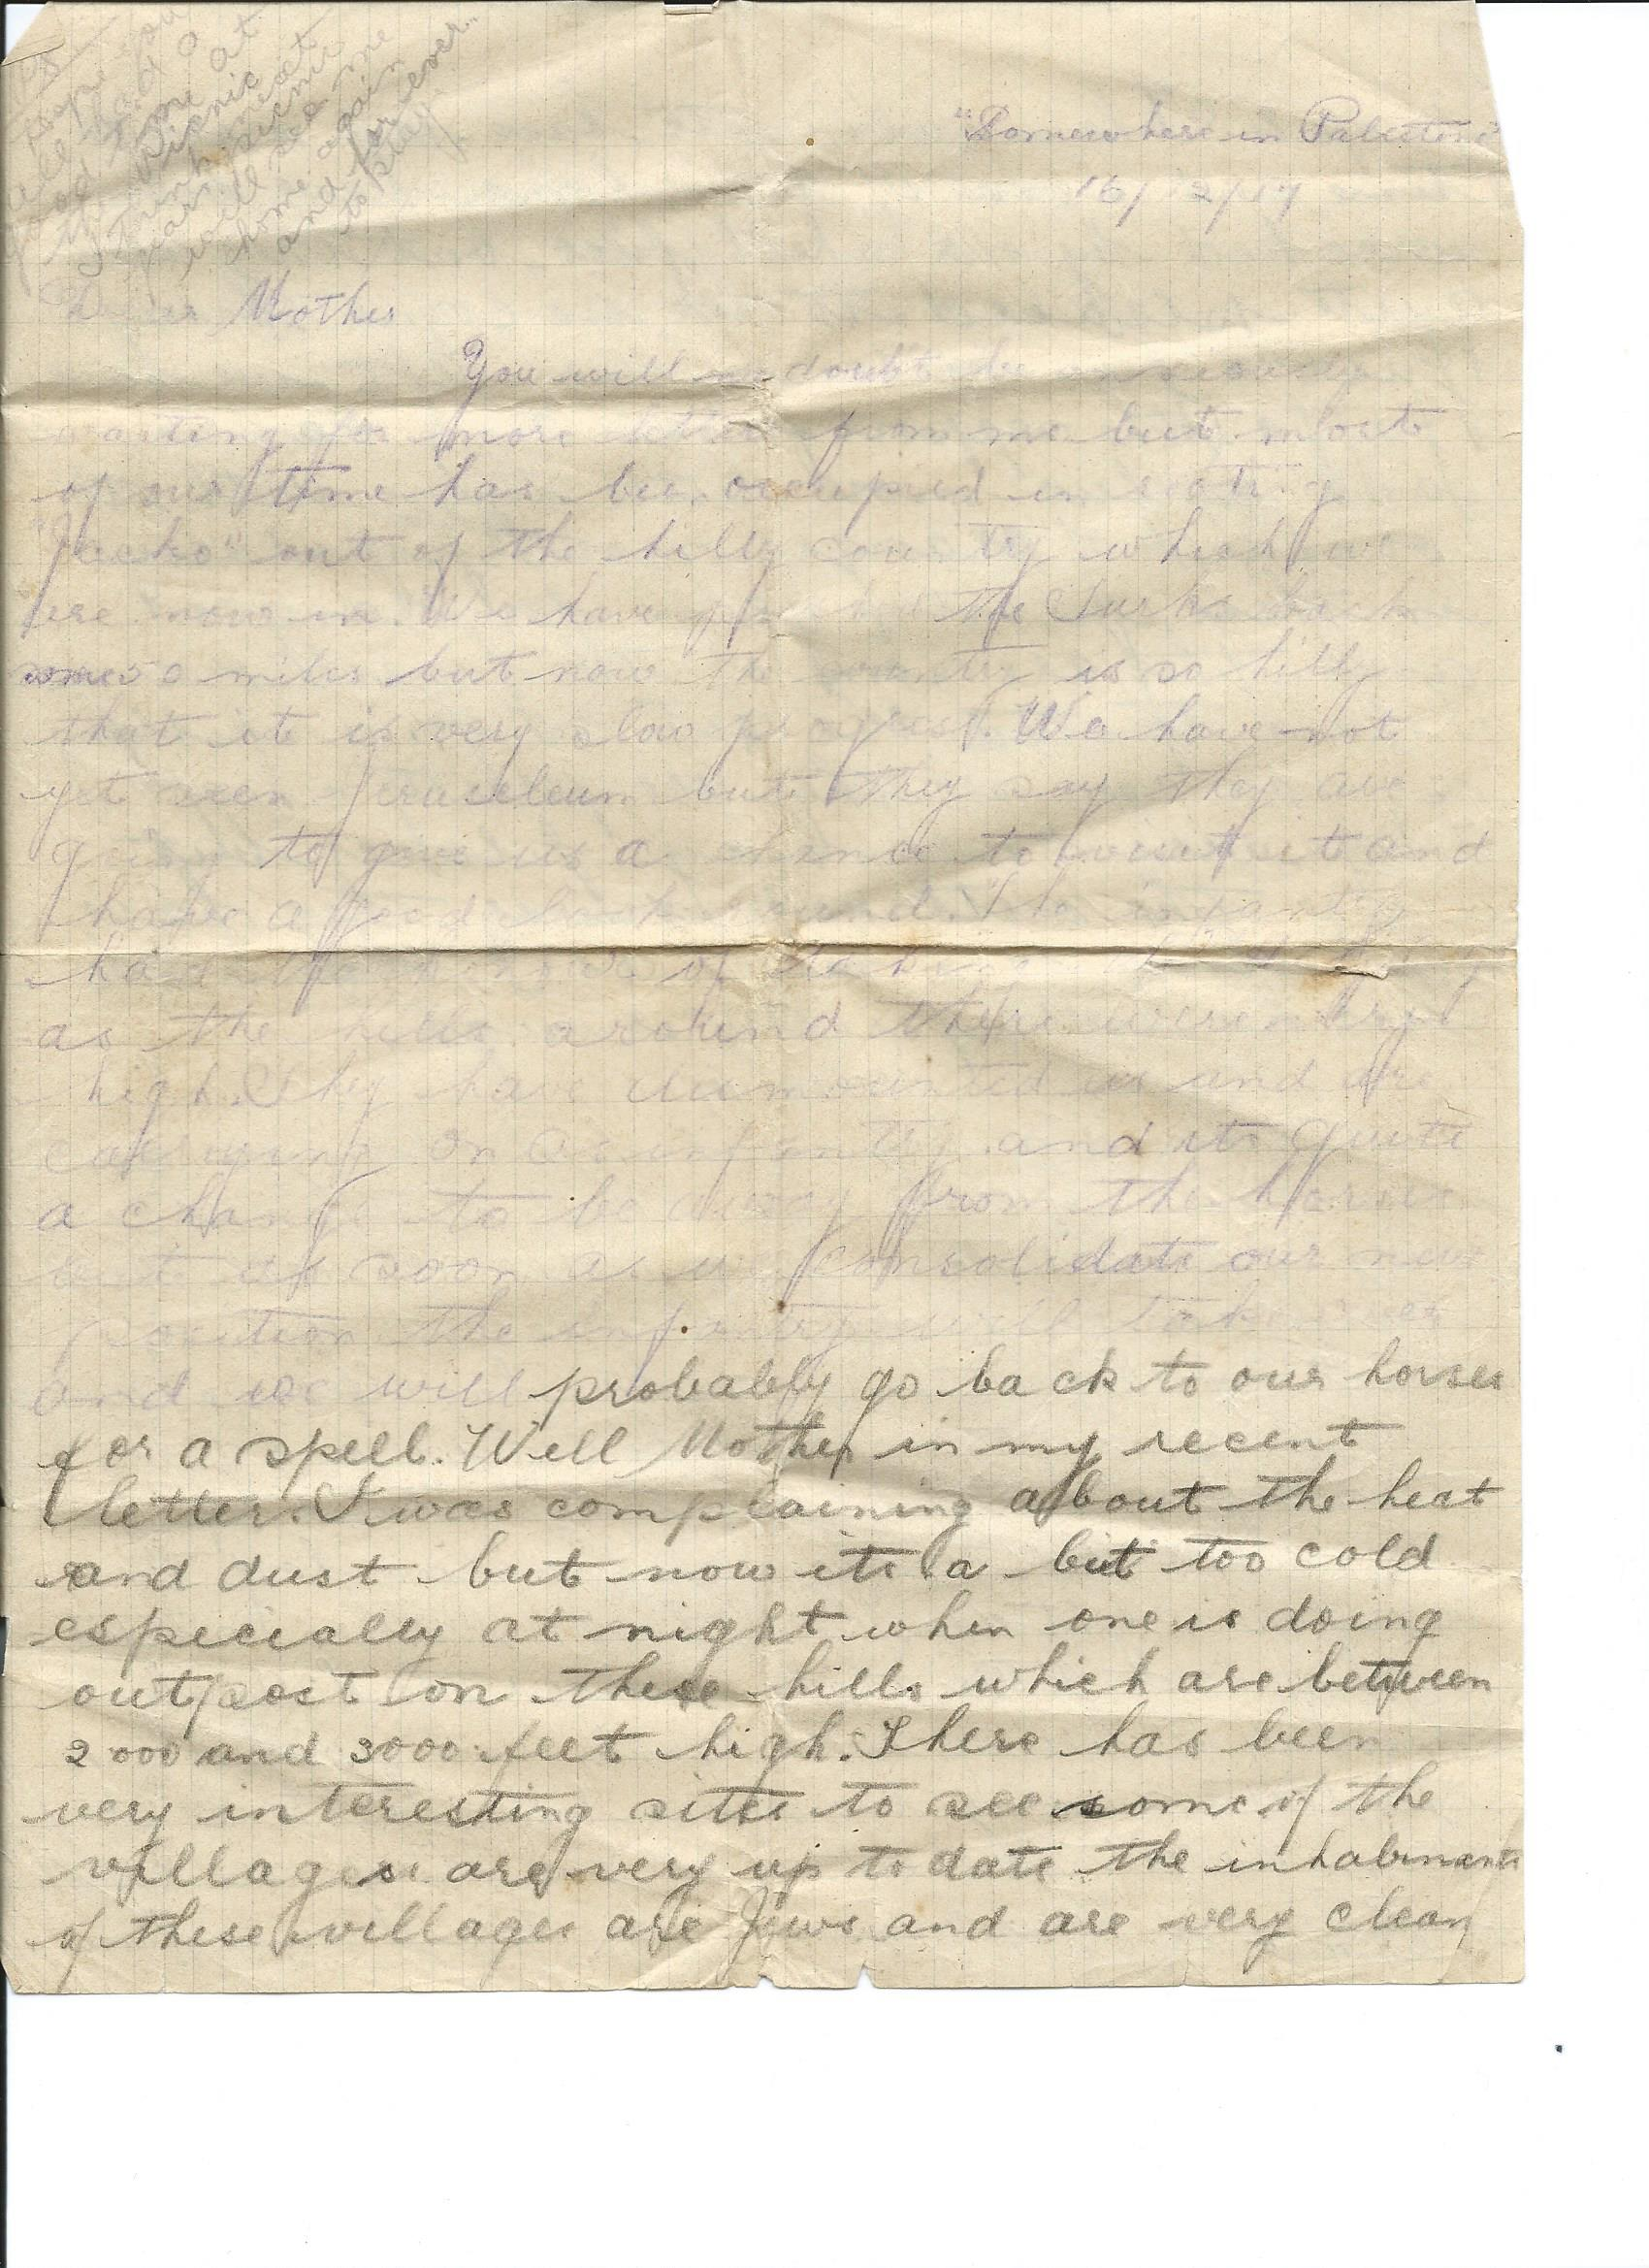 PS
hope you
all had a
good time at
the picnic
I think next
year's picnic
will see me
home again
and for ever
to stay.
"Somewhere in Palestine"
16/12/17
Dear Mother
You will no doubt be anxiously
waiting for more letters from me but most
of our time has been occupied in
"Jacko" out of the hilly country which we
are now in. We have pushed the Turks back
some 50 miles but now the country is so hilly
that it is very slow progress. We have not
yet seen Jeruseleum but they say they are
going to give us a chance to visit it and
have a good look round. The infantry
had the honour of taking
as the hills around there were very
high. They have dismounted us and are
carrying on as infantry and its quite
a change to be away from the horses
but as soon as we consolidate our new
position the infantry will take over
and we will probably go back to our horses
for a spell. Well Mother in my recent
letters I was complaining about the heat
and dust but now its a bit too cold
especially at night when one is doing
outpost on these hills which are between
2000 and 3000 feet high. There has been
very interesting sites to see some of the
villages are very up to date the inhabinants
of these villages are Jews and are very clean